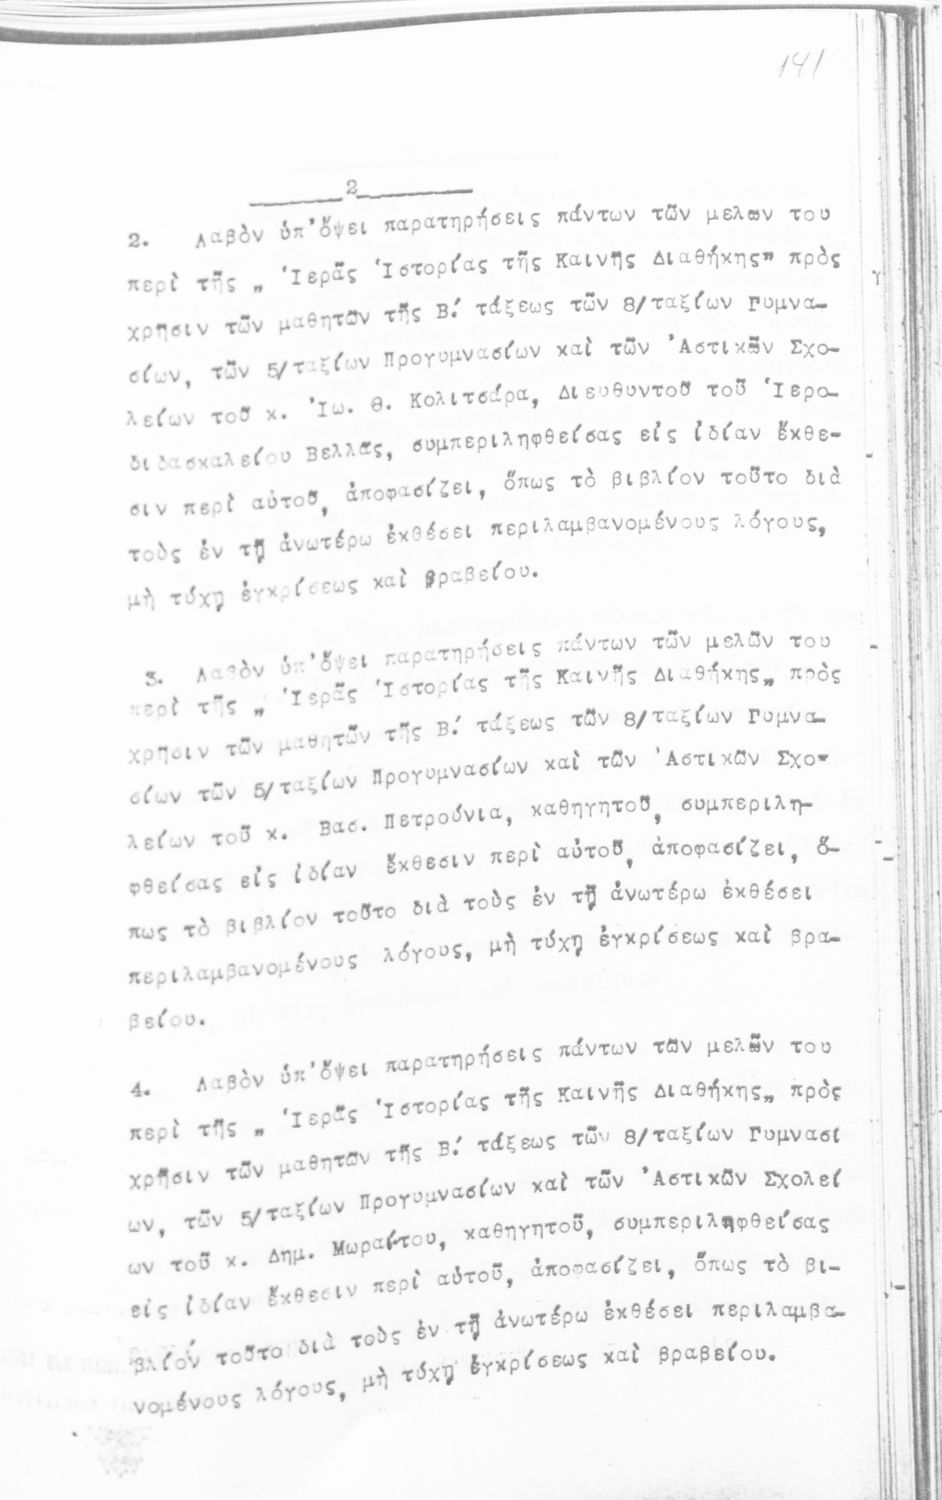 141
2
2. Λαβὸν ὑπ'ὄψει παρατηρήσεις πάντων τῶν μελων του
περὶ τῆς „ Ἱερᾶς Ἱστορίας τῆς Καινῆς Διαθήκης" πρὸς
χρησιν τῶν μαθητῶν τῆς Β.' τάξεως τῶν 8/ταξίων Γυμνα-
σίων, τῶν 5/ταξίων Προγυμνασίων καὶ τῶν Ἀστικῶν Σχο-
λείων τοῦ κ. Ἰω. Θ. Κολιτσάρα, Διευθυντοῦ τοῦ Ἱερο-
διδασκαλείου Βελλᾶς, συμπεριληφθείσας εἰς ἰδίαν ἔκθε-
σιν περὶ αὐτοῦ, ἀποφασίζει, ὅπως τὸ βιβλίον τοῦτο διὰ
τοὺς ἐν τῇ ἀνωτέρω ἐκθέσει περιλαμβανομένους λόγους,
μὴ τύχῃ ἐγκρίσεως καὶ βραβείου.
3. Λαβὸν ὑπ'ὄψει παρατηρήσεις πάντων τῶν μελῶν του
περὶ τῆς „ Ἱερᾶς Ἱστορίας τῆς Καινῆς Διαθήκης„ πρὸς
χρησιν τῶν μαθητῶν τῆς Β.' τάξεως τῶν 8/ταξίων Γυμνα-
σίων τῶν 5/ταξίων Προγυμνασίων καὶ τῶν Ἀστικῶν Σχο-
λείων τοῦ κ. Βασ. Πετρούνια, καθηγητοῦ, συμπεριλη-
φθείσας εἰς ἰδίαν ἔκθεσιν περὶ αὐτοῦ, ἀποφασίζει, ὅ-
πως τὸ βιβλίον τοῦτο διὰ τοὺς ἐν τῇ ἀνωτέρω ἐκθέσει
περιλαμβανομένους λόγους, μὴ τύχῃ ἐγκρίσεως καὶ βρα-
βείου.
4. Λαβὸν ὑπ'ὄψει παρατηρήσεις πάντων τῶν μελῶν του
περὶ τῆς „ Ἱερᾶς Ἱστορίας τῆς Καινῆς Διαθήκης„ πρὸς
χρῆσιν τῶν μαθητῶν τῆς Β.' τάξεως τῶν 8/ταξίων Γυμνασί
ων, τῶν 5/ταξίων Προγυμνασίων καὶ τῶν Ἀστικῶν Σχολεί
ων τοῦ κ. Δημ. Μωραΐτου, καθηγητοῦ, συμπεριληφθείσας
εἰς ἰδίαν ἔκθεσιν περὶ αὐτοῦ, ἀποφασίζει, ὅπως τὸ βι-
βλίον τοῦτο διὰ τοὺς ἐν τῇ ἀνωτέρω ἐκθέσει περιλαμβα-
νομένους λόγους, μὴ τύχῃ ἐγκρίσεως καὶ βραβείου.